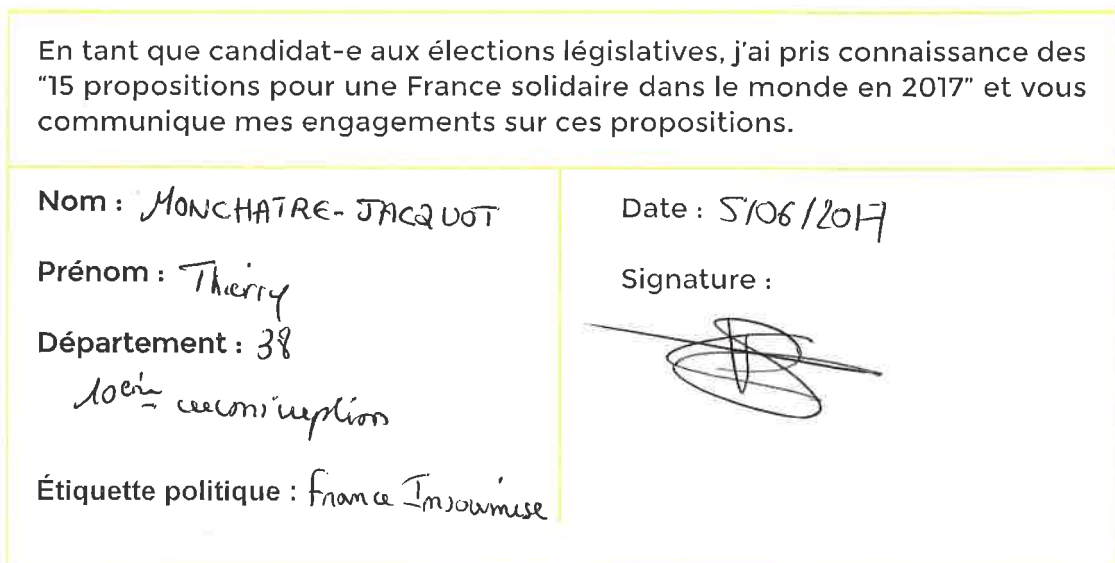 En tant que candidat-e aux élections législatives, j'ai pris connaissance des
"15 propositions pour une France solidaire dans le monde en 2017" et vous
communique mes engagements sur ces propositions.
Nom : MONCHATRE-JACQUOT
Prénom : Thierry
Département : 38
10eme circonscription
Étiquette politique : France Insoumise
Date : 5/06/2017
Signature :